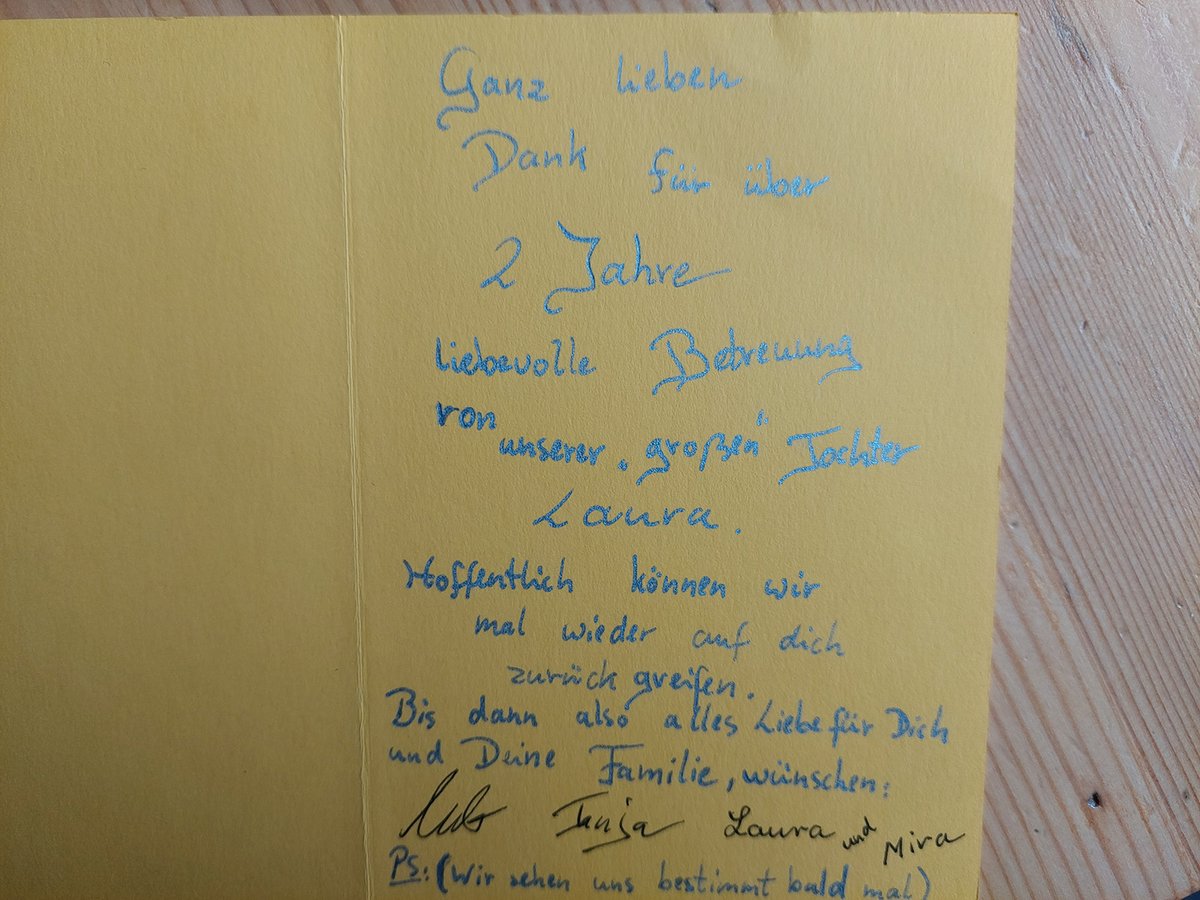 Ganz lieben
Dank für über
2 Jahre
liebevolle Betreuung
von unserer „großen" Tochter
Laura.
Hoffentlich können wir
mal wieder auf dich
zurück greifen.
Bis dann also alles Liebe für Dich
und Deine Familie, wünschen:
Tanja Laura und Mira
PS: (Wir sehen uns bestimmt bald mal)